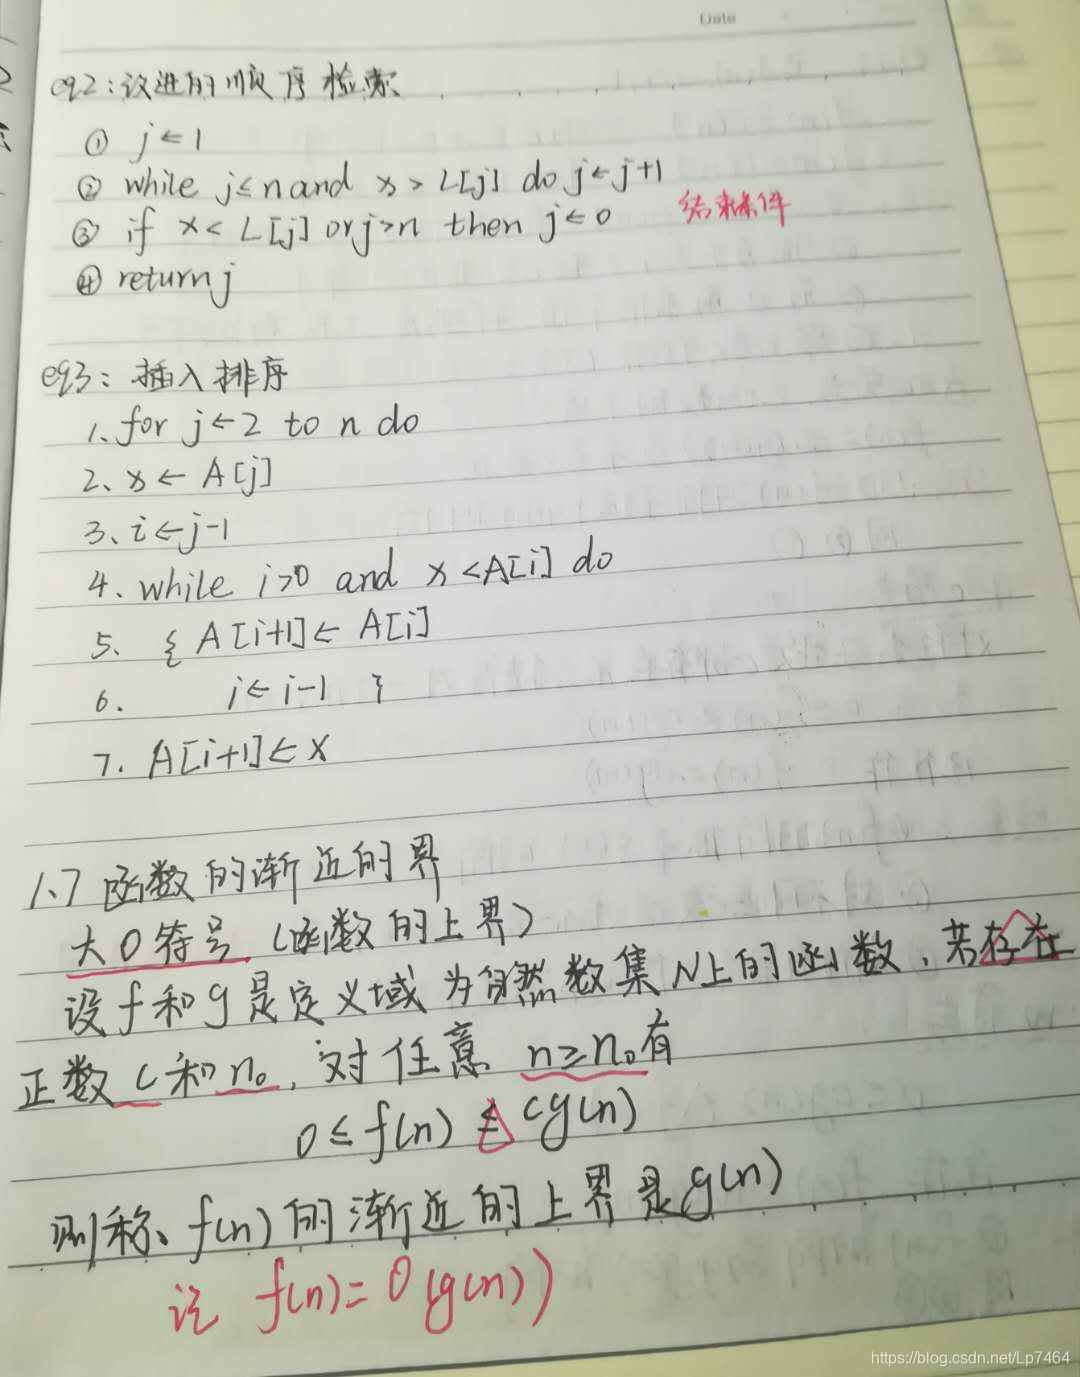 Date
eg2:改进的顺序检索
① j←1
② while j≤n and x > L[j] do j←j+1
③ if x < L[j] or j>n then j←0 结束条件
④ return j
eg3:插入排序
1、for j←2 to n do
2、x← A[j]
3、i←j-1
4、while i>0 and x <A[i] do
5、{ A[i+1]← A[i]
6、 i← i-1 }
7、A[i+1]← x
1.7 函数的渐近的界
大O符号(函数的上界)
设f和g是定义域为自然数集N上的函数,若存在
正数c和n₀,对任意 n≥n₀有
0≤f(n)≤cg(n)
则称、f(n)的渐近的上界是g(n)
记 f(n)=O(g(n))
https://blog.csdn.net/Lp7464